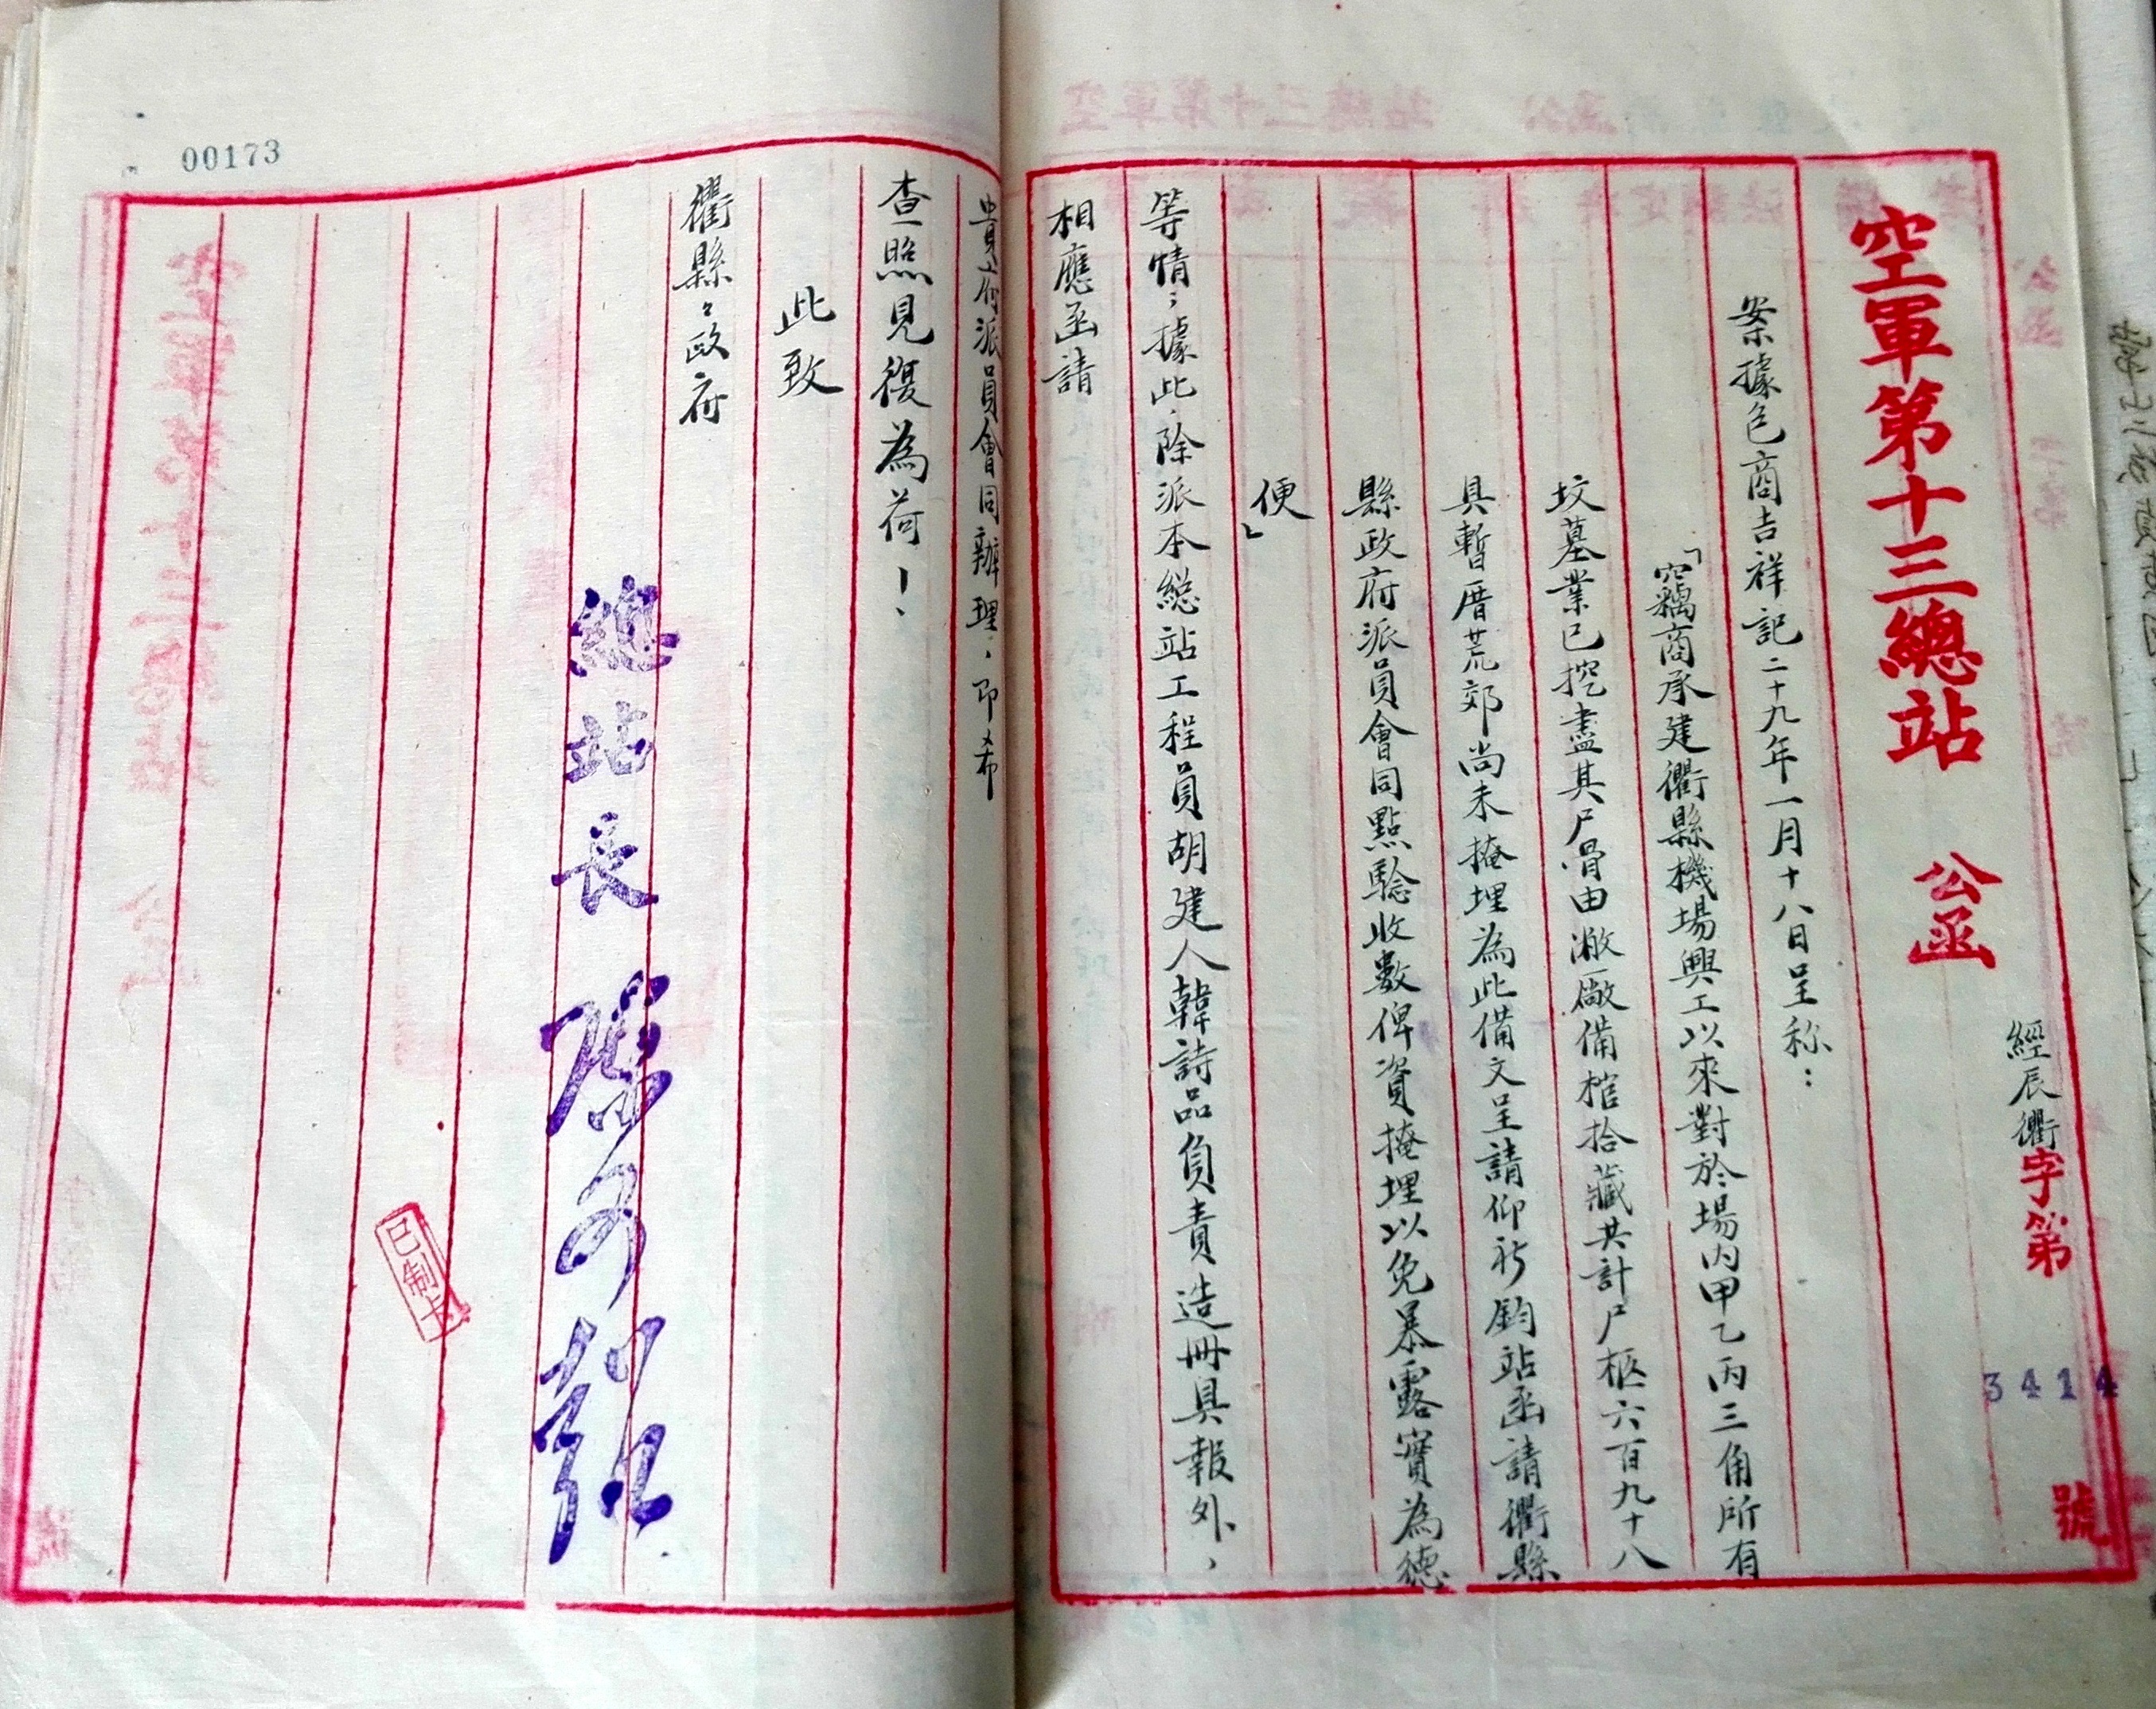 空軍第十三總站 公函
經辰衢字第 3414 號
案據包商吉祥記二十九年一月十八日呈称：
「竊商承建衢縣機場興工以來對於場内甲乙丙三角所有
坟墓業已挖盡其尸骨由敝廠備棺拾藏共計尸柩六百九十八
具暫厝荒郊尚未掩埋為此備文呈請仰祈鈞站函請衢縣
縣政府派員會同點驗收數俾資掩埋以免暴露實為德
便」
等情；據此，除派本総站工程員胡建人韓詩品負責造冊具報外，
相應函請
貴府派員會同辦理，即希
查照見復為荷！
此致
衢縣々政府
總站長
已制卡
00173